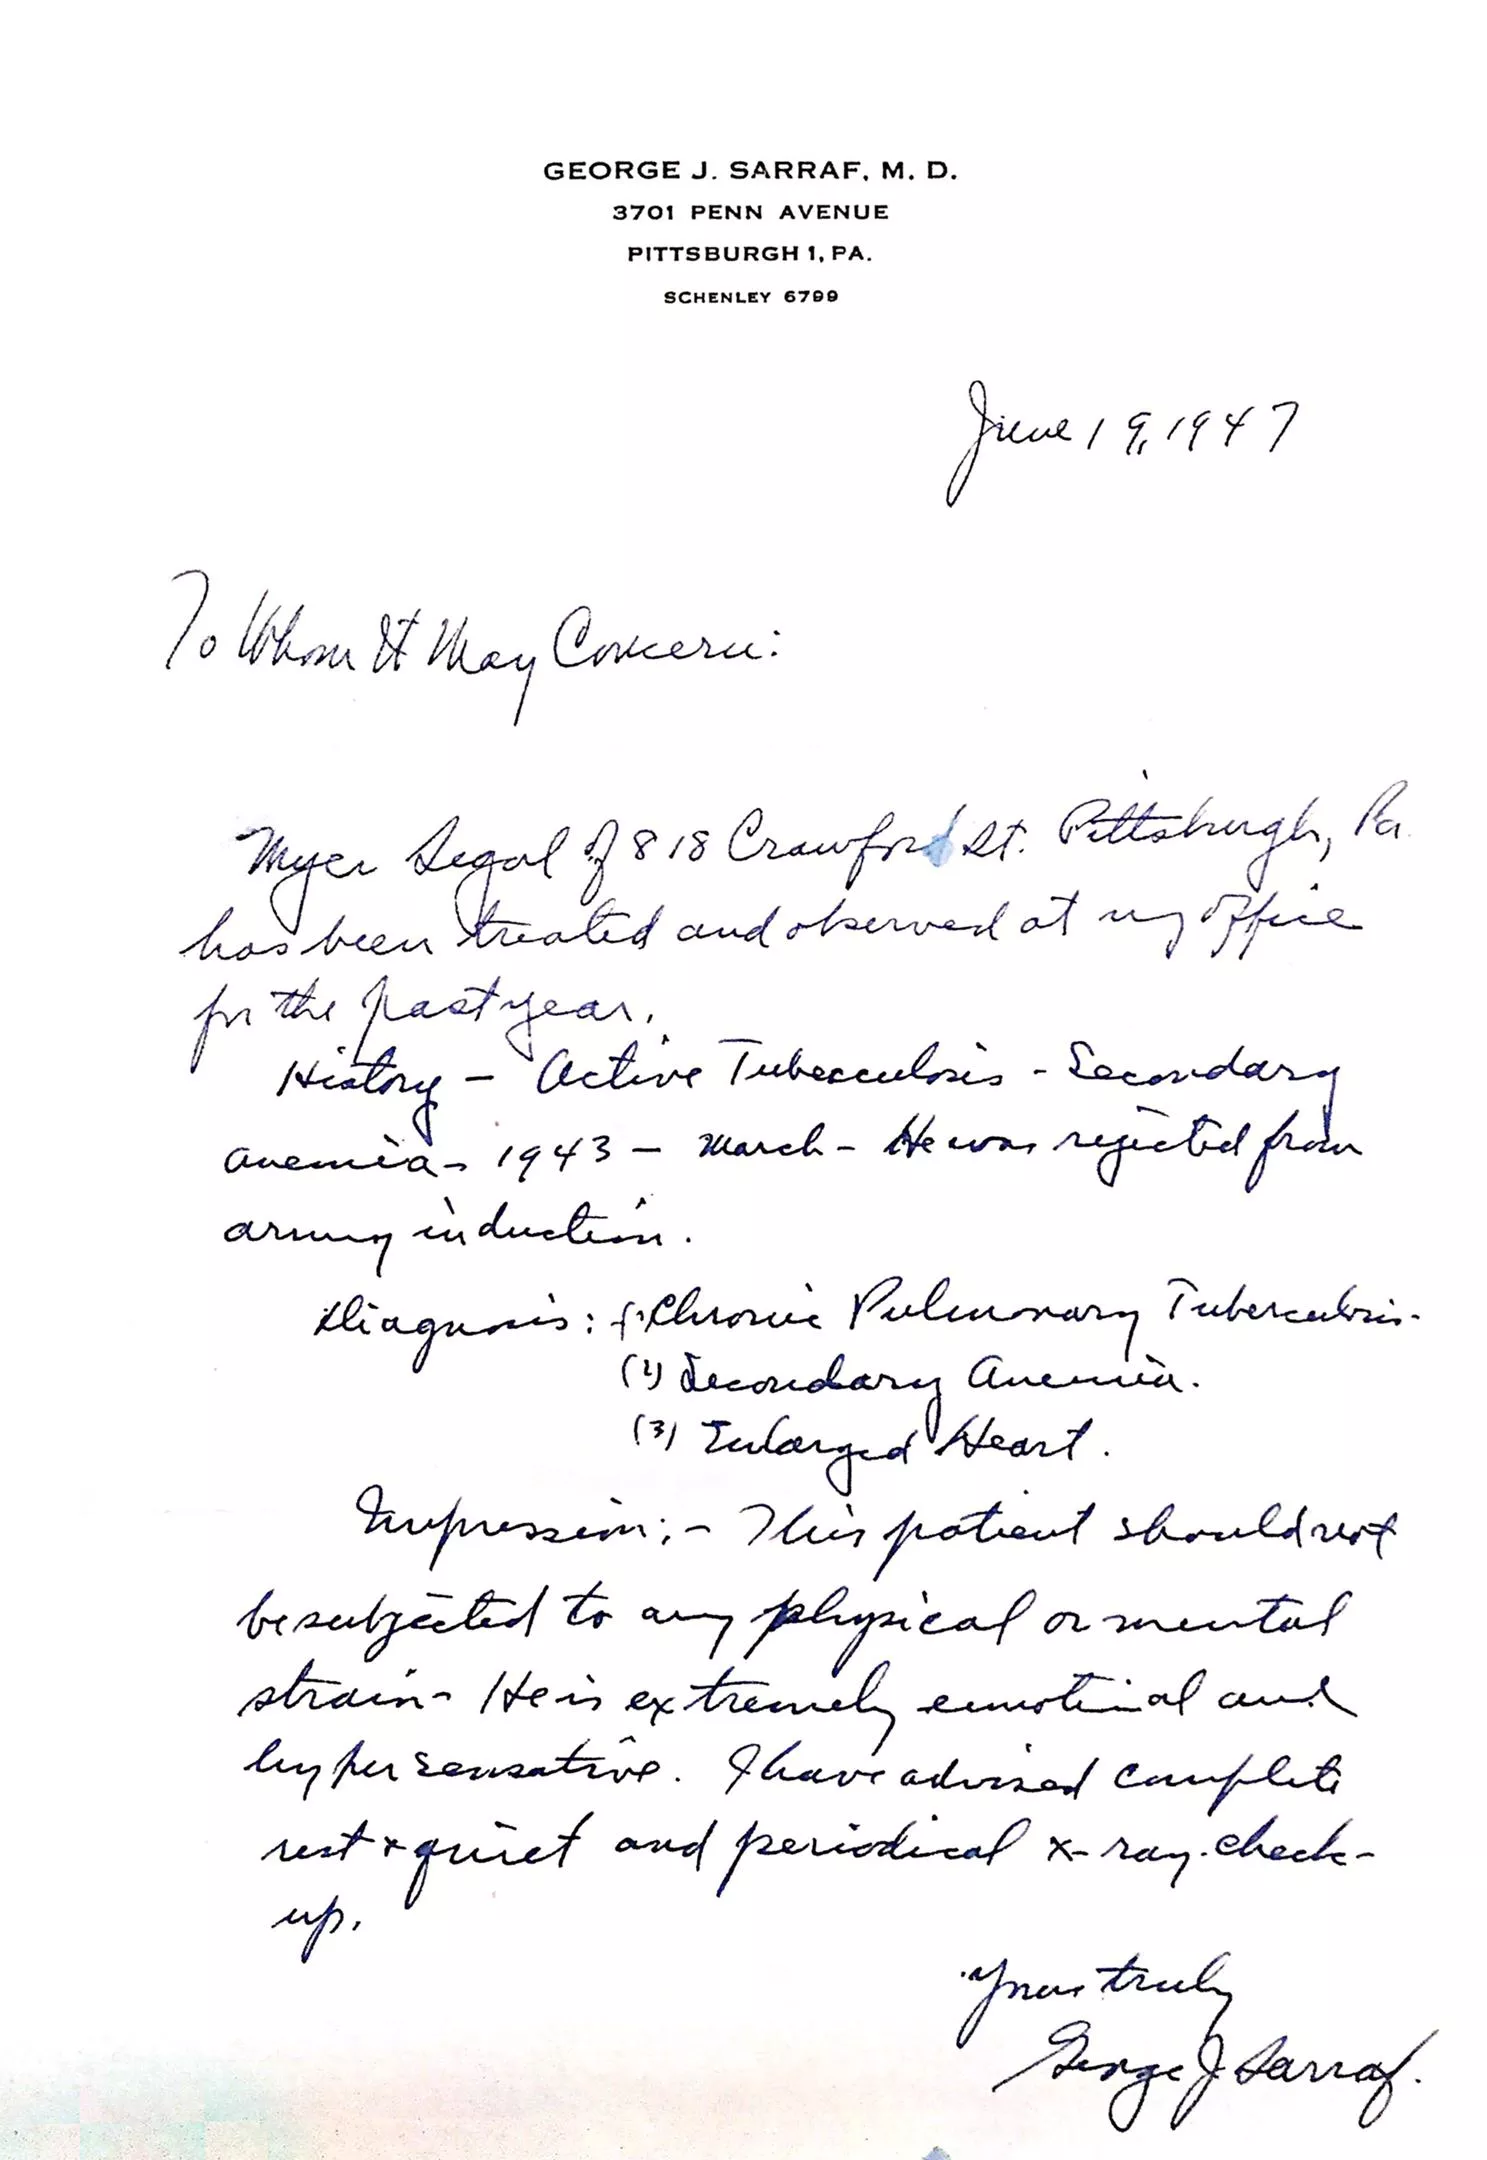 GEORGE J. SARRAF, M. D.
3701 PENN AVENUE
PITTSBURGH 1, PA.
SCHENLEY 6799
June 19, 1947
To Whom It May Concern:
Myer Segal of 818 Crawford St. Pittsburgh, Pa.
has been treated and observed at my office
for the past year.
History - Active Tuberculosis - Secondary
anemia - 1943 - March - He was rejected from
army induction.
Diagnosis: (1) Chronic Pulmonary Tuberculosis.
(2) Secondary Anemia.
(3) Enlarged Heart.
Impression; - This patient should not
be subjected to any physical or mental
strain - He is extremely emotional and
hypersensative. I have advised complete
rest + quiet and periodical x-ray check-
up.
Yours truly
George J Sarraf.